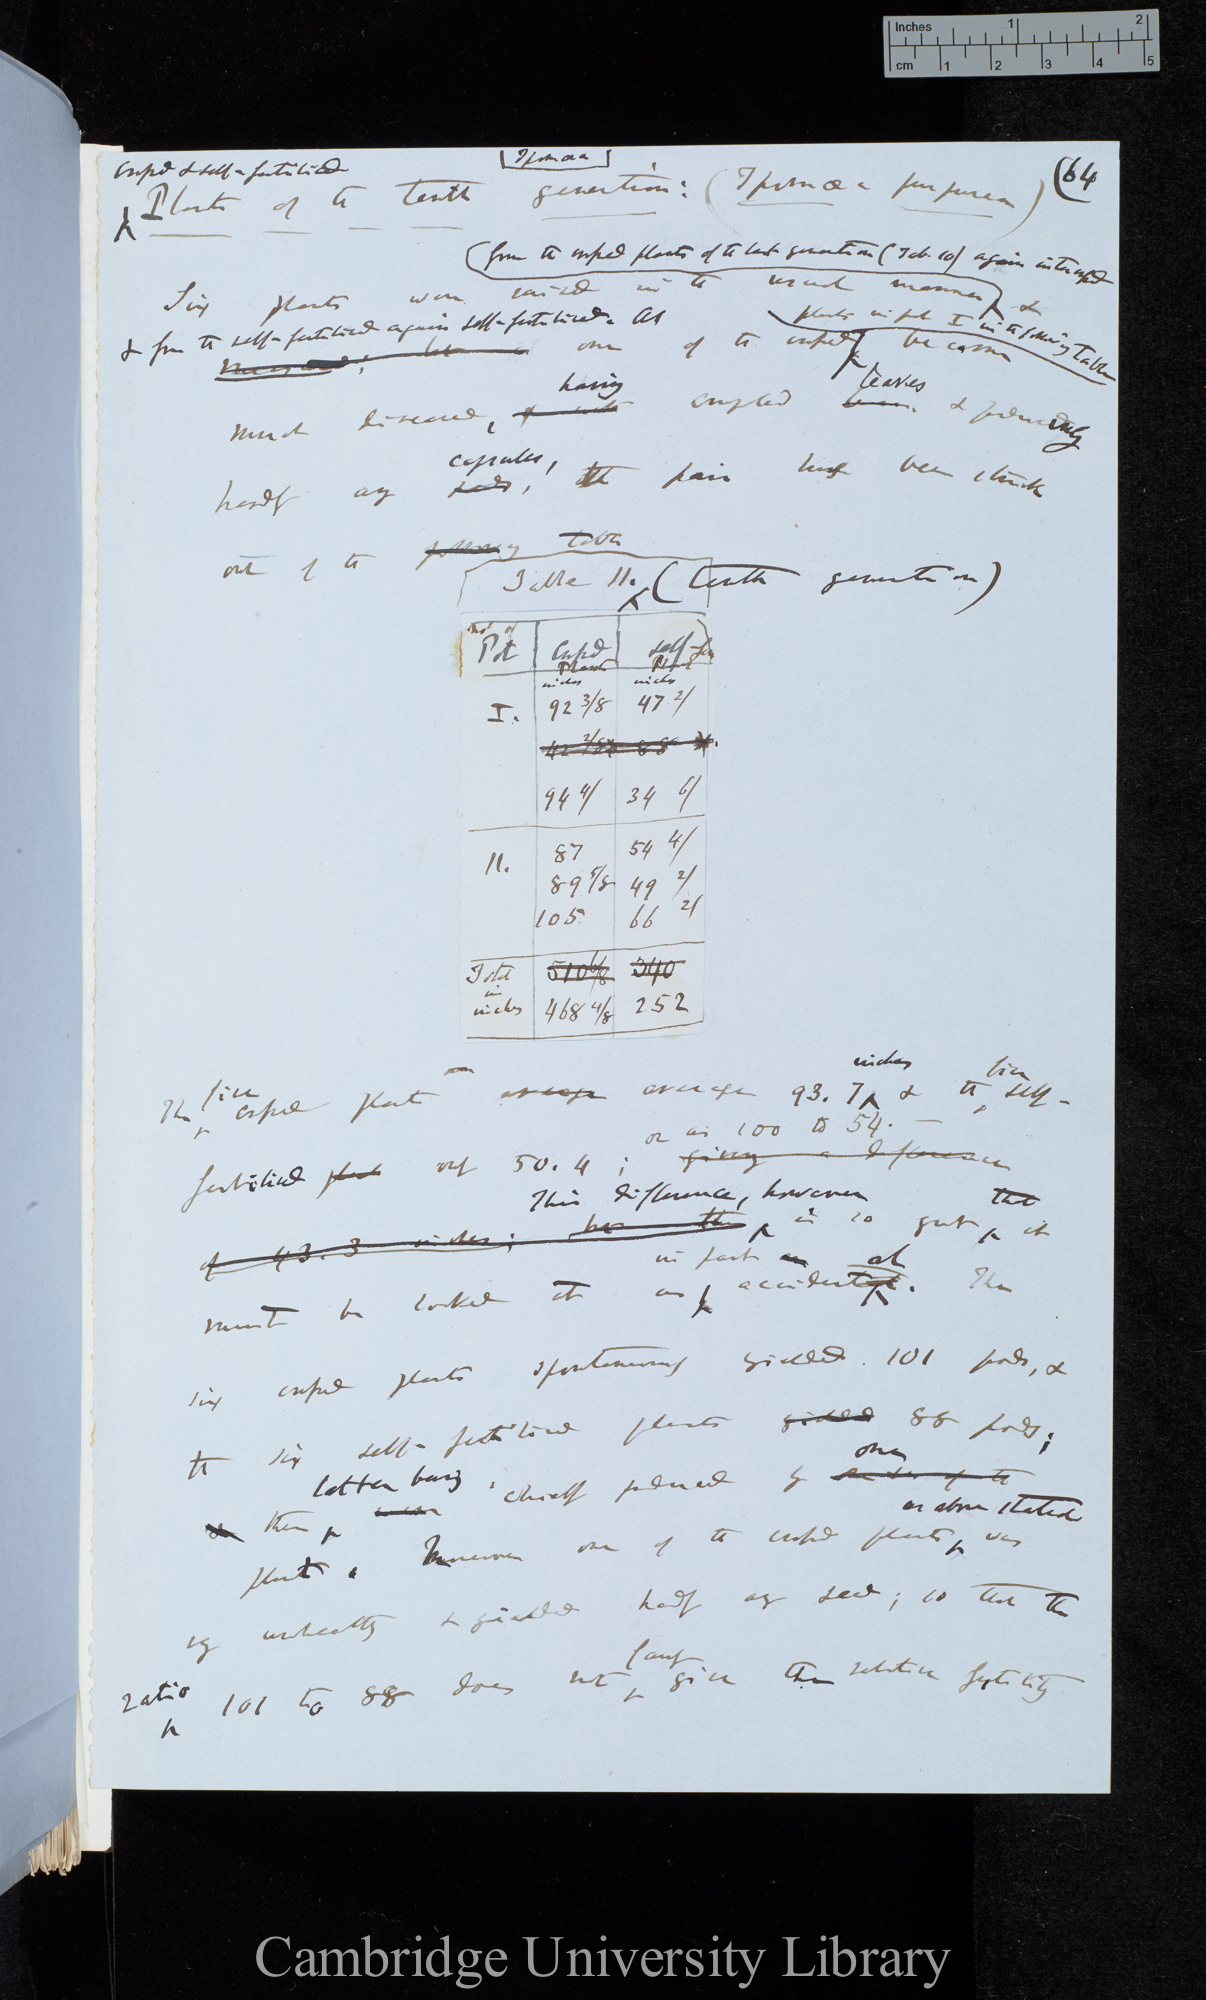 Inches 1 2
cm 1 2 3 4 5
Ipomœa
(64
crossd & self-fertilised
Plants of the tenth generation: (Ipomœa purpurea)
(from the crossed plants of the last generation (Tab. 10) again intercrossed
Six plants were raised in the usual manner &
& from the self-fertilised again self-fertilised. As
plants in pot I in the following table
one of the crossed became
having leaves
much diseased, crumpled & producing
capsules,
hardly any seeds, the pair have been struck
out of the following table
Table 11. (tenth generation)
No. of Pot Crossd Plants Self-fer Plants
inches inches
I. 92 3/8 47 2/
42 88
94 4/ 34 6/
II. 87 54 4/
89 5/8 49 2/
105 66 2/
Total in inches 510 6/8 340
468 4/8 252
inches
five five
The crossed plants average average 93.7 & the self-
or as 100 to 54. —
fertilised plants only 50.4; giving a difference
This difference, however that
of 43.3 inches; is so great it
in part al
must be looked at as accidental. The
six crossed plants spontaneously yielded 101 pods, &
the six self-fertilised plants yielded 88 pods;
latter being one
& these chiefly produced by of the
as above stated
plant. Moreover one of the crossed plants, was
so unhealthy & yielded hardly any seed; so that the
fairly
ratio 101 to 88 does not give the relative fertility
Cambridge University Library